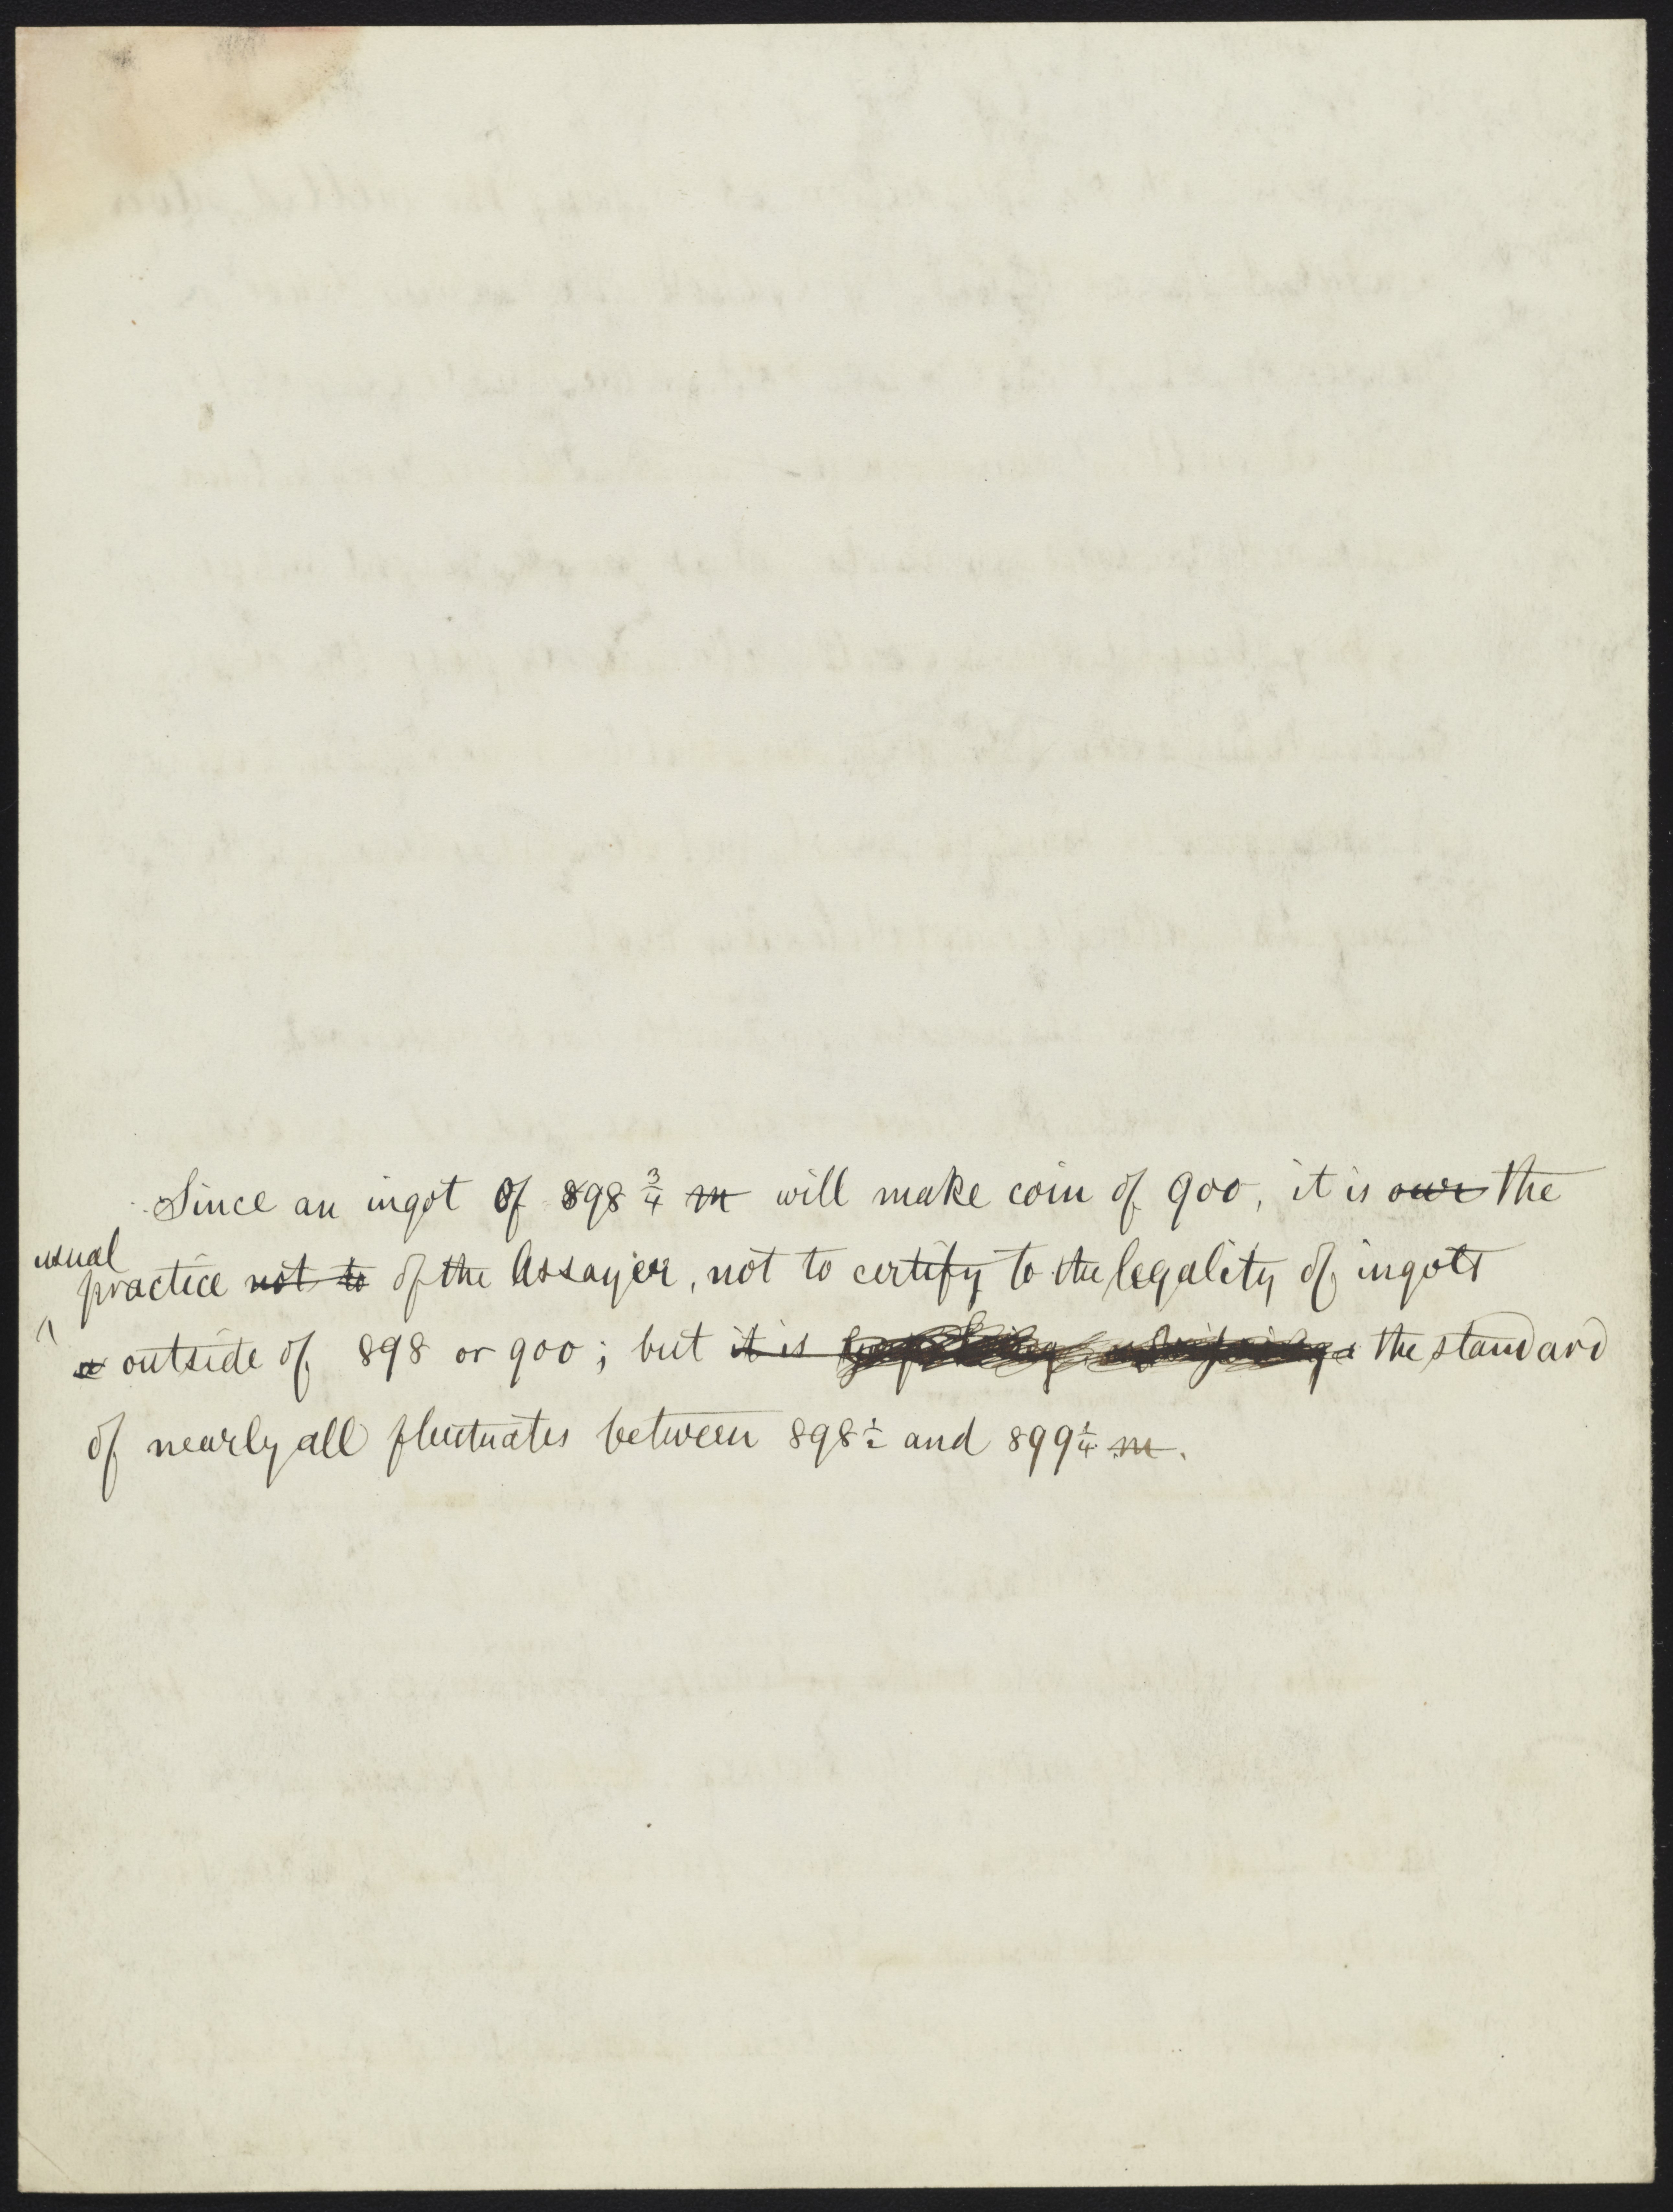 Since an ingot of 898 3/4 m will make coin of 900, it is our the
usual
practice not to of the Assayer, not to certify to the legality of ingots
outside of 898 or 900; but it is the standard
of nearly all fluctuates between 898 1/2 and 899 1/4 m.